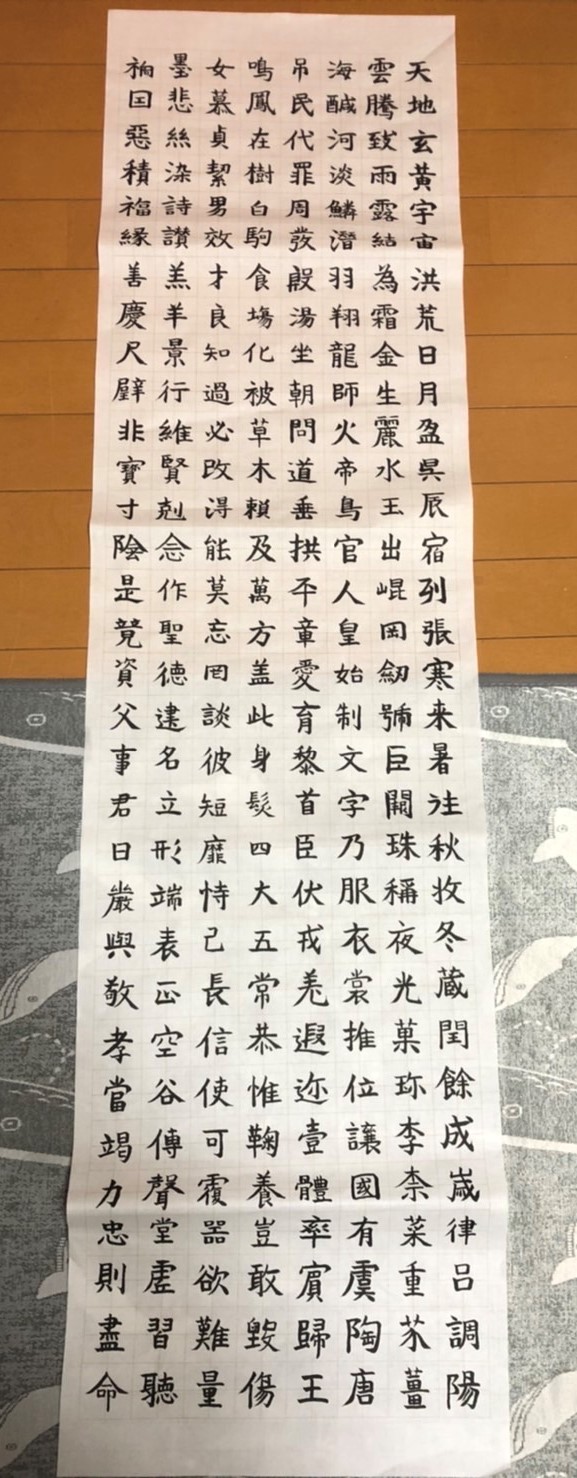 天地玄黃宇宙洪荒日月盈昃辰宿列張寒来暑往秋收冬蔵閏餘成歲律呂調陽
雲騰致雨露結為霜金生麗水玉出崐岡劔號巨闕珠稱夜光菓珎李柰菜重芥薑
海醎河淡鱗潛羽翔龍師火帝鳥官人皇始制文字乃服衣裳推位讓國有虞陶唐
吊民代罪周發殷湯坐朝問道垂拱平章愛育黎首臣伏戎羌遐迩壹體率賓歸王
鳴鳳在樹白駒食場化被草木賴及萬方盖此身髮四大五常恭惟鞠養豈敢毀傷
女慕貞絜男效才良知過必改得能莫忘罔談彼短靡恃己長信使可覆器欲難量
墨悲絲染詩讃羔羊景行維賢剋念作聖德建名立形端表正空谷傳聲堂虛習聽
禍因惡積福緣善慶尺璧非寶寸陰是競資父事君曰嚴與敬孝當竭力忠則盡命